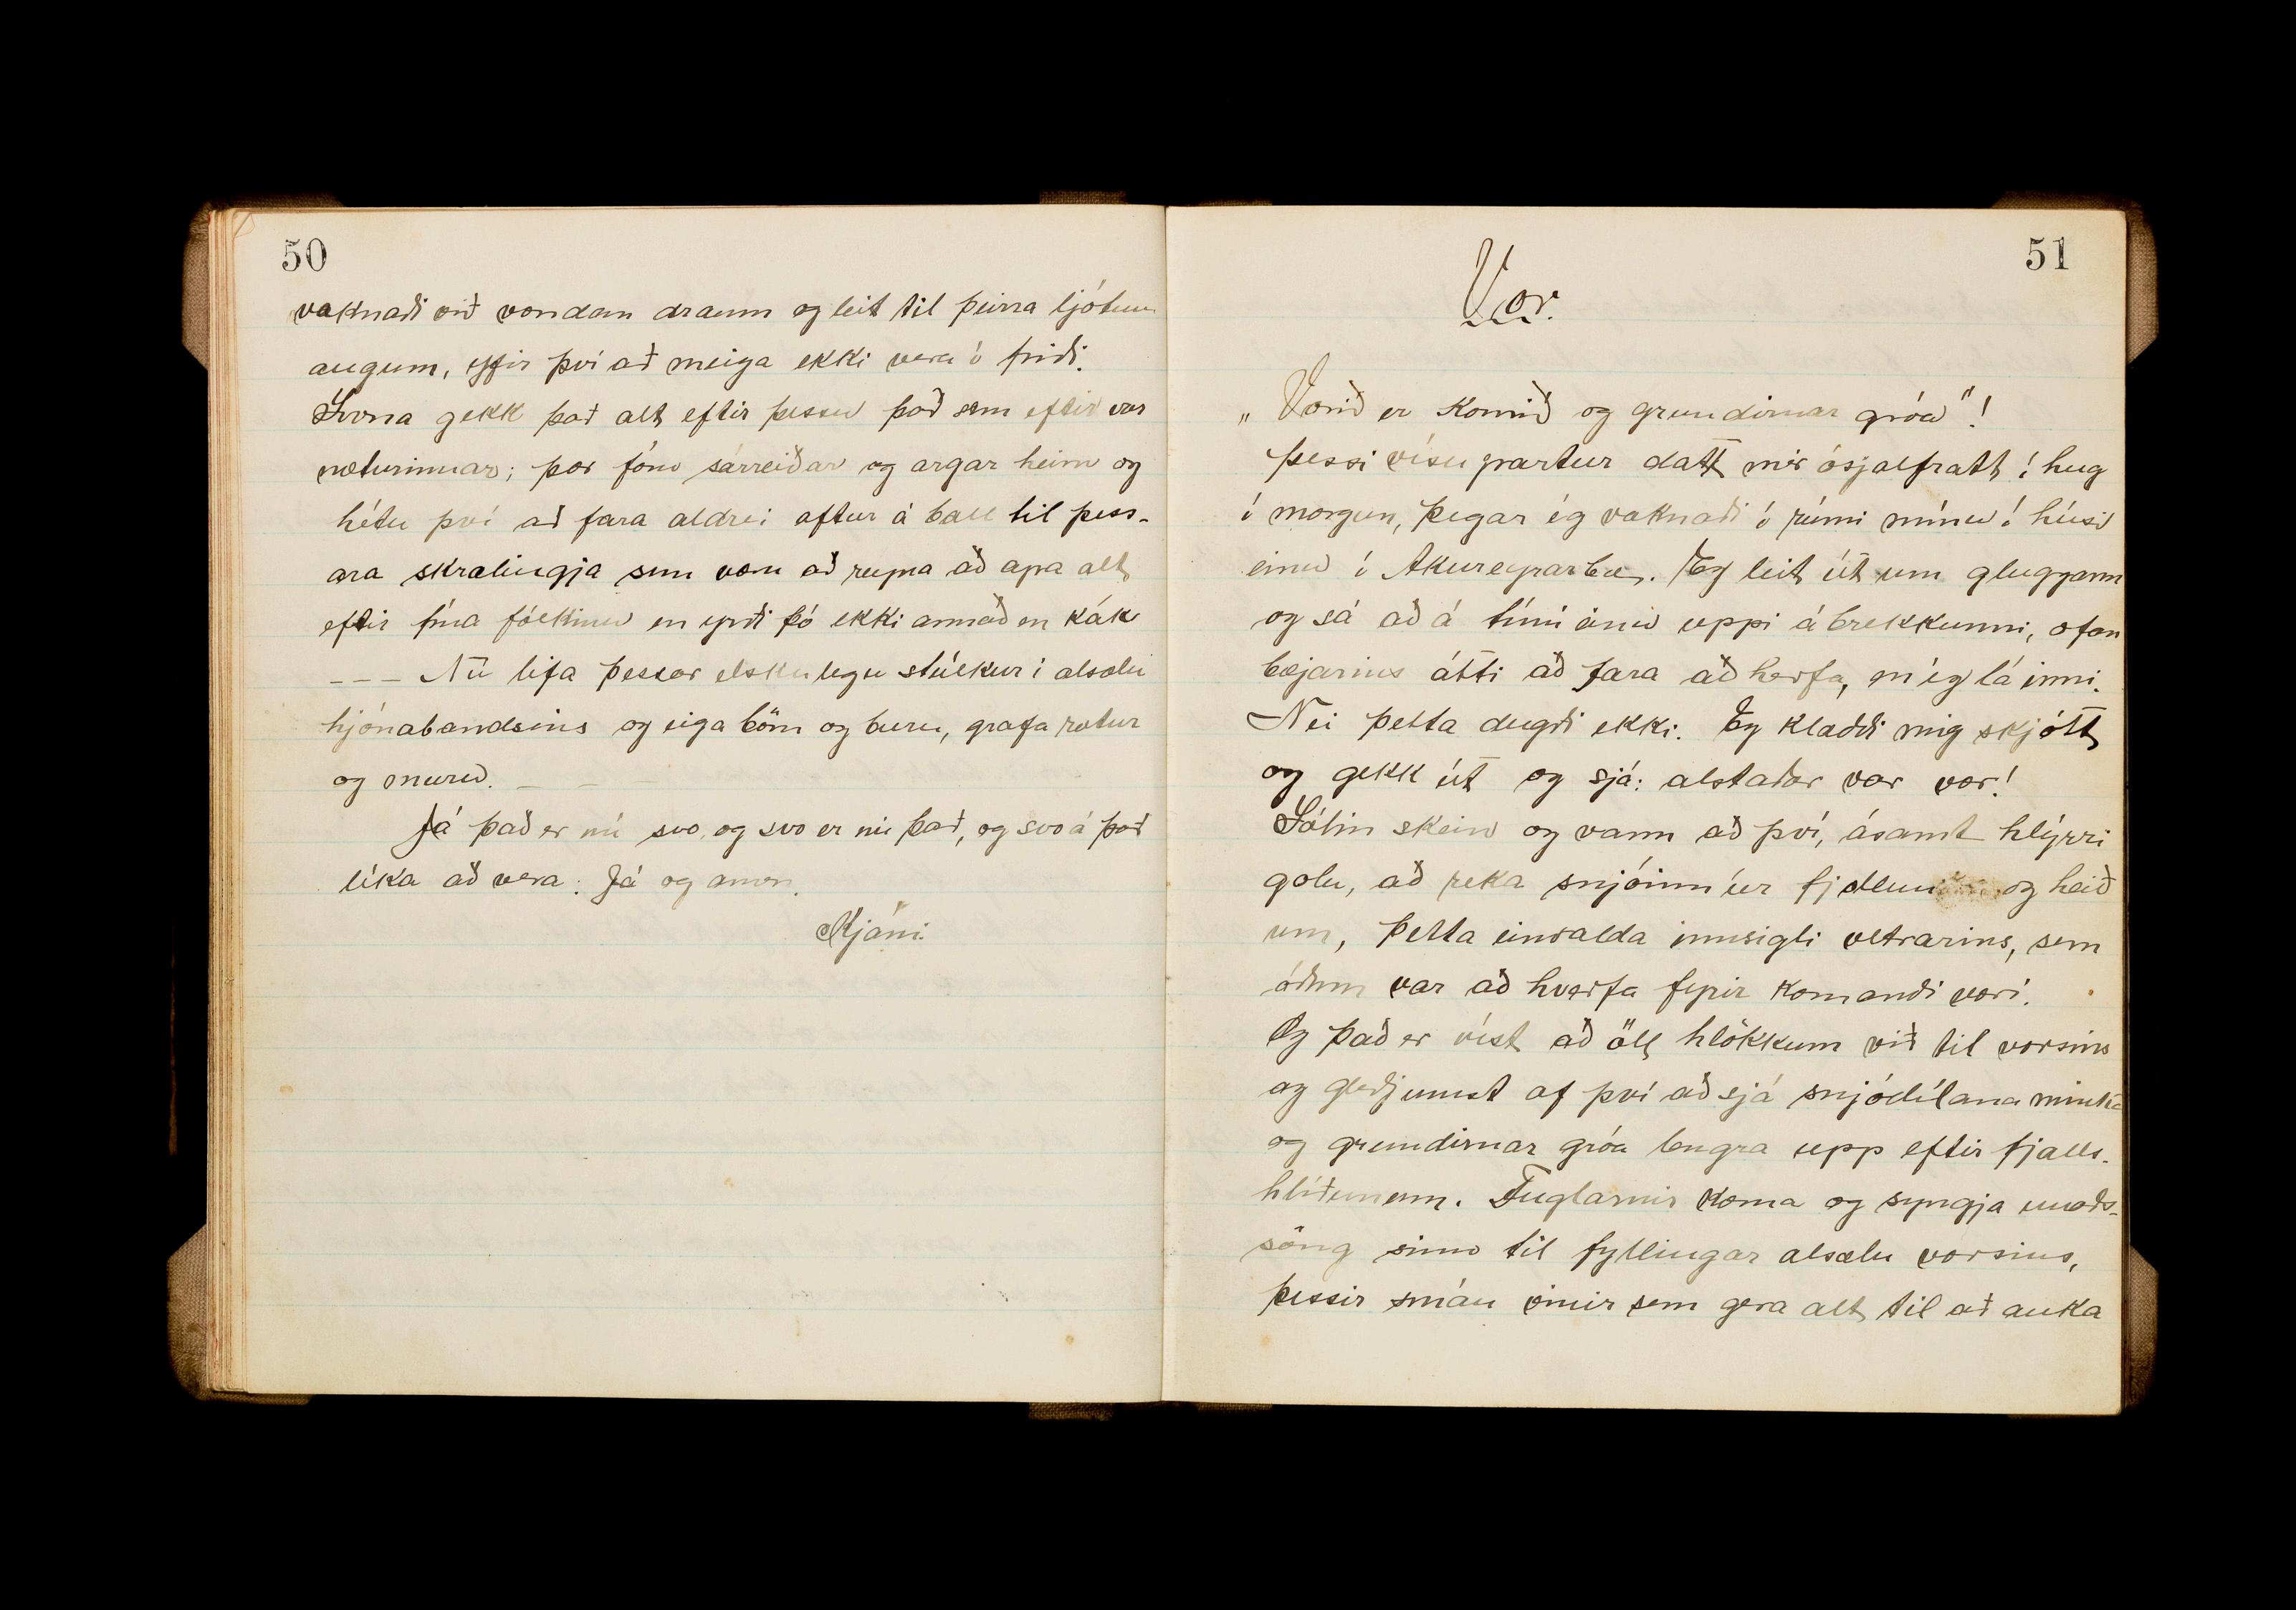 50
vaknaði við vondan draum og leit til þeirra ljótum
augum, yfir því að meiga ekki vera í friði.
Svona gekk það alt eftir þessu það sem eftir var
næturinnar; þær fóru sárreiðar og argar heim og
hétu því að fara aldrei aftur á ball til þess-
ara skrælingja sem væru að reyna að apa alt
eftir fína fólkinu en yrði þó ekki annað en kák
--- Nú lifa þessar elskulegu stúlkur í alsælu
hjónabandsins og eiga börn og buru, grafa rætur
og muru. - -
Já það er nú svo, og svo er nú það, og svo á það
líka að vera. Já og amen.
Kjáni.
51
Vor.
„Vorið er komið og grundirnar gróa"!
Þessi vísupartur datt mér ósjálfrátt í hug
í morgun, þegar ég vaknaði í rúmi mínu í húsi
einu í Akureyrarbæ. Eg leit út um gluggann
og sá að á túni einu uppi á brekkunni, ofan
bæjarins átti að fara að herfa, en ég lá inni.
Nei þetta dugði ekki. Eg klæddi mig skjótt
og gekk út og sjá: alstaðar var vor!
Sólin skein og vann að því, ásamt hlýrri
golu, að reka snjóinn úr fjöllum og heið
um, þetta einvalda innsigli vetrarins, sem
óðum var að hverfa fyrir komandi vori.
Og það er víst að öll hlökkum við til vorsins
og gleðjumst af því að sjá snjódílana minka
og grundirnar gróa lengra upp eftir fjalls-
hlíðunum. Fuglarnir koma og syngja unaðs-
söng sinn til fyllingar alsælu vorsins,
þessir smáu vinir sem gera alt til að auka